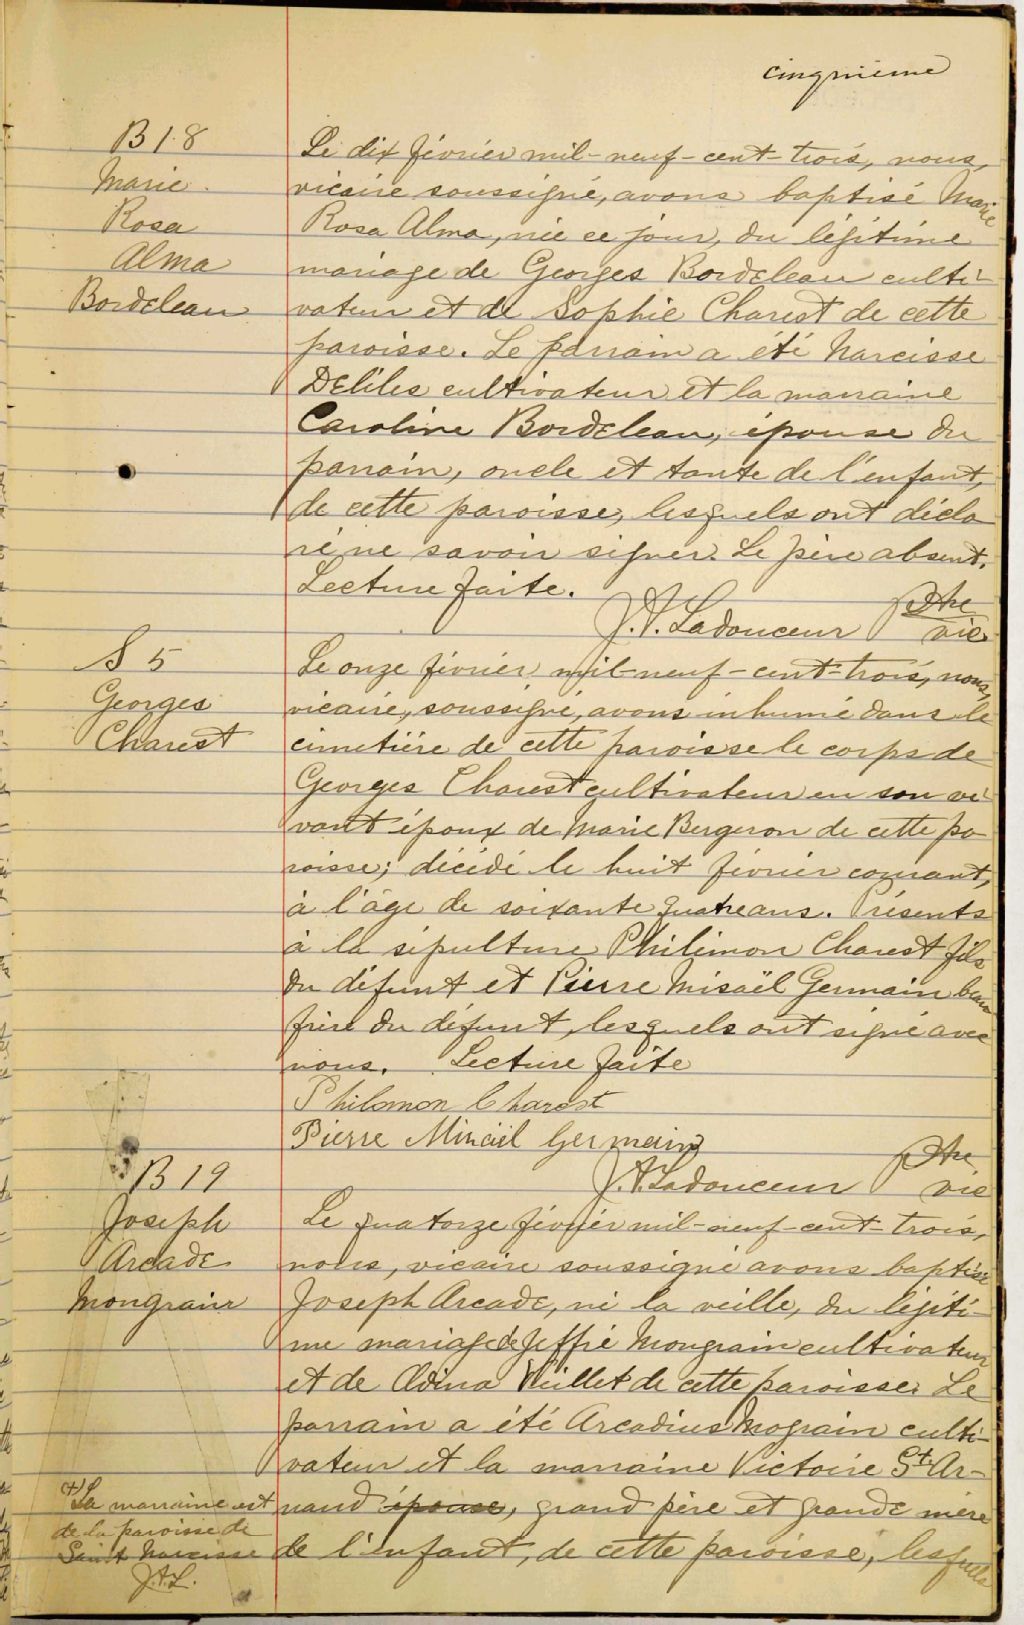 cinquième
B 18
Marie
Rosa
Alma
Bordeleau
Le dix février mil-neuf-cent-trois, nous,
vicaire soussigné, avons baptisé Marie
Rosa Alma, née ce jour, du légitime
mariage de Georges Bordeleau culti-
vateur et de Sophie Charest de cette
paroisse. Le parrain a été Narcisse
Deliles cultivateur et la marraine
Caroline Bordeleau, épouse du
parrain, oncle et tante de l'enfant,
de cette paroisse, lesquels ont décla
ré ne savoir signer. Le père absent.
Lecture faite.
J. A. Ladouceur Ptre
vic
S 5
Georges
Charest
Le onze février mil-neuf-cent-trois, nous,
vicaire, soussigné, avons inhumé dans le
cimetière de cette paroisse le corps de
Georges Charest cultivateur en son vi-
vant époux de Marie Bergeron de cette pa
roisse; décédé le huit février courant,
à l'âge de soixante quatre ans. Présents
à la sépulture Philémon Charest fils
du défunt et Pierre Misaël Germain beau
frère du défunt, lesquels ont signé avec
nous. Lecture faite
Philemon Charest
Pierre Misaël Germain
J. A. Ladouceur Ptre
vic
B 19
Joseph
Arcade
Mongrain
Le quatorze février mil-neuf-cent-trois,
nous, vicaire soussigné avons baptisé
Joseph Arcade, né la veille, du légiti-
me mariage de Jeffré Mongrain cultivateur
et de Adina Veillet de cette paroisse. Le
parrain a été Arcadius Mograin culti-
vateur et la marraine Victoire St. Ar-
naud épouse, grand père et grande mère
de l'enfant, de cette paroisse, lesquels
(+) La marraine est
de la paroisse de
Saint Narcisse
J.A.L.